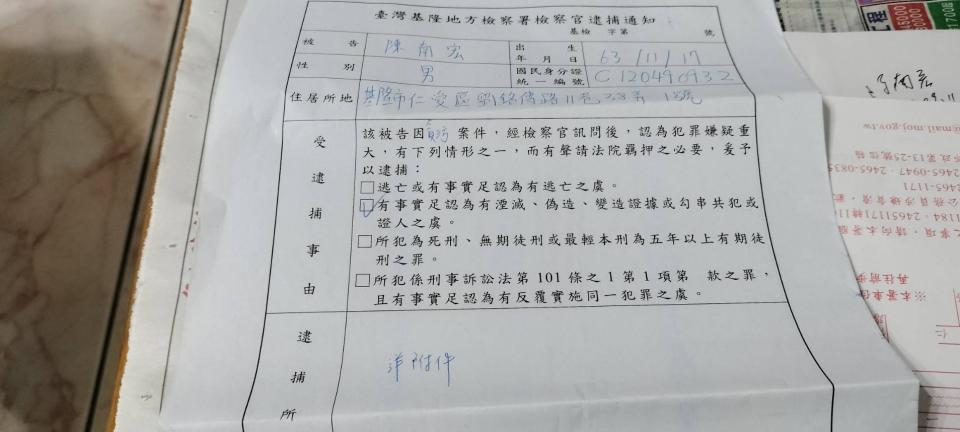 臺灣基隆地方檢察署檢察官逮捕通知
基檢 字第 號
被告 陳南宏 出生年月日 63/11/17
性別 男 國民身分證統一編號 C120490932
住居所地 基隆市仁愛區劉銘傳路11巷23弄1號
受逮捕事由
該被告因貪污案件，經檢察官訊問後，認為犯罪嫌疑重
大，有下列情形之一，而有聲請法院羈押之必要，爰予
以逮捕：
□逃亡或有事實足認為有逃亡之虞。
☑有事實足認為有湮滅、偽造、變造證據或勾串共犯或
證人之虞。
□所犯為死刑、無期徒刑或最輕本刑為五年以上有期徒
刑之罪。
□所犯係刑事訴訟法第101條之1第1項第 款之罪，
且有事實足認為有反覆實施同一犯罪之虞。
逮捕所
詳附件
@mail.moj.gov.tw
2465-1171